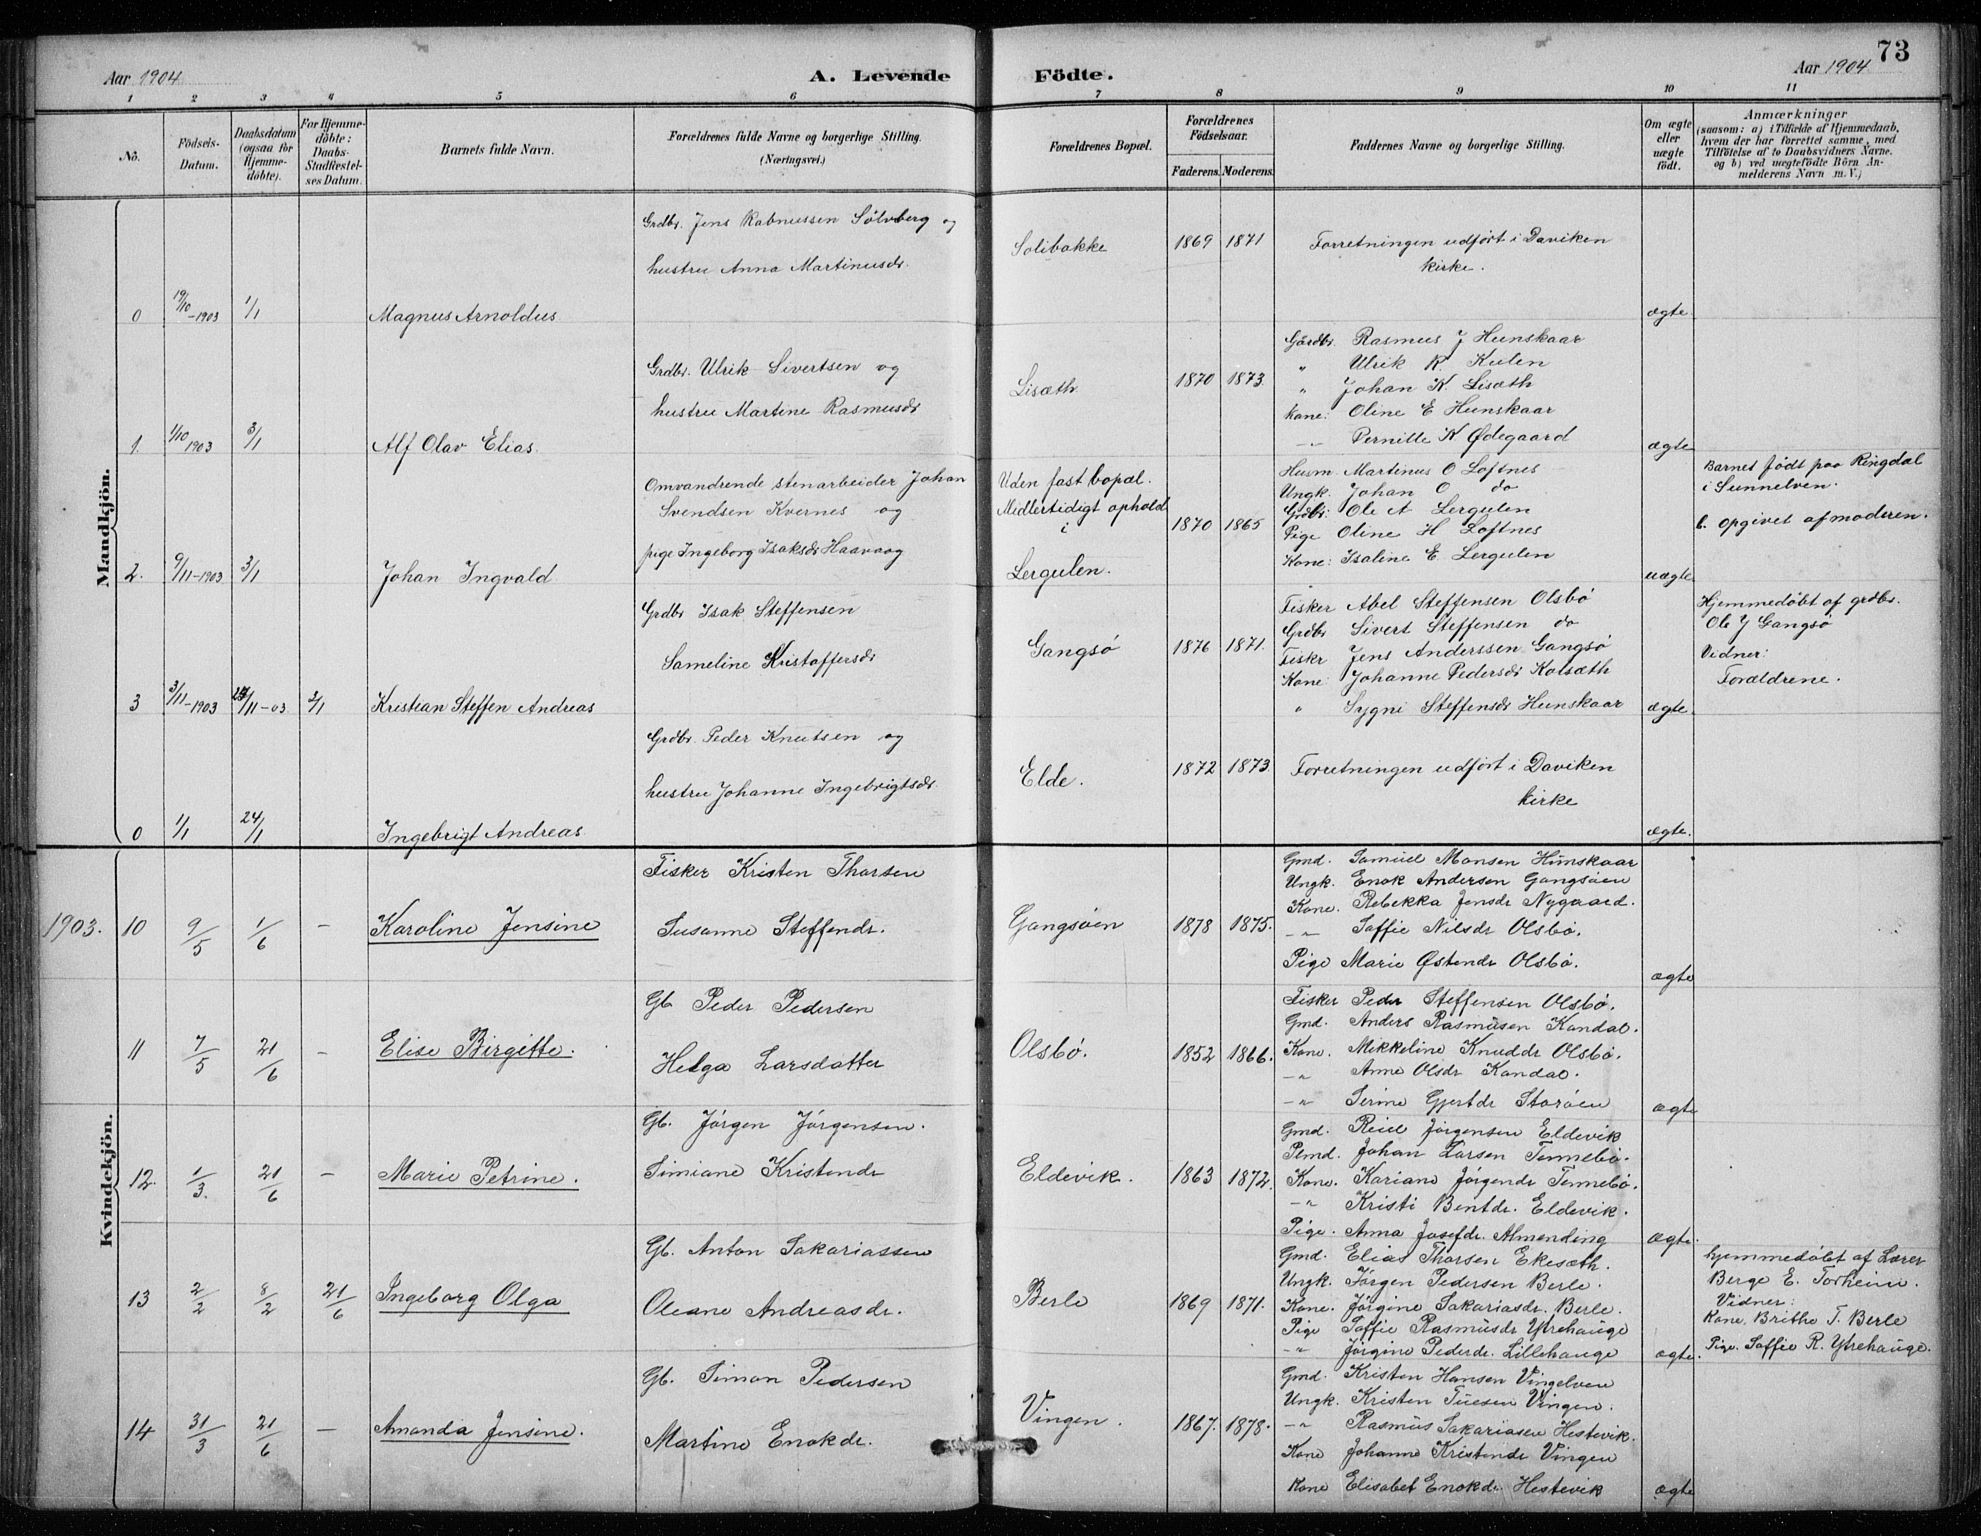 73
Aar 1904
A. Levende
Födte.
Aar 1904
1 2 3 4 5 6 7 8 9 10 11
No.
Födsels-
Datum.
Daabsdatum
(ogsaa for
Hjemme-
döbte).
For Hjemme-
döbte:
Daabs-
Stadfæstel-
ses Datum.
Barnets fulde Navn.
Forældrenes fulde Navne og borgerlige Stilling.
(Næringsvei.)
Forældrenes Bopæl.
Forældrenes
Födselsaar.
Faderens. Moderens.
Faddernes Navne og borgerlige Stilling.
Om ægte
eller
uægte
födt.
Anmærkninger
(saasom: a) i Tilfælde af Hjemmedaab,
hvem der har forrettet samme, med
Tilföielse af to Daabsvidners Navne.
og b) ved uægtefödte Börn An-
melderens Navn m. V.)
Mandkjön.
0
19/10-1903
1/1
Magnus Arnoldus
Grdbr. Jens Rabnussen Sölvberg og
hustru Anna Martinusdr.
Solibakke
1869 1871
Forretningen udført i Daviken
kirke.
ægte.
1.
1/10 1903
3/1
Alf Olav Elias.
Grdbr. Ulrik Sivertsen og
hustru Martine Rasmusdr
Lisæth
1870 1873.
Gårdbr. Rasmus J Hunskaar
" Ulrik R. Kulen
" Johan K. Lisæth
Kone: Oline E Hunskaar
-"- Pernille K Ødegaard
ægte
2.
9/11-1903
3/1
Johan Ingvald
Omvandrende stenarbeider Johan
Svendsen Kvernes og
pige Ingeborg Isaksdr Haavaag
Uden fast bopæl.
Midlertidigt ophold
i
Lergulen.
1870 1865
Husm. Martinus O Loftnes
Ungk. Johan O do
Grdbr: Ole A Lergulen
Pige Oline H Loftnes
Kone: Isaline E. Lergulen
uægte
Barnet født paa Ringdal
i Sunnelven.
b. opgivet af moderen.
3
3/11-1903
/11-03
3/1
Kristian Steffen Andreas
Grdbr Isak Steffensen
Sameline Kristoffersdr
Gangsø
1876 1871.
Fisker Abel Steffensen Olsbö
Grdbr Sivert Steffensen do
Fiskr Jens Anderssen Gangsø
Kone: Johanne Pedersdr Kolsæth
" Sygni Steffensdr Hunskaar
ægte.
Hjemmedøbt af grdbr.
Ole J Gangsø
Vidner:
Forældrene.
0
1/1
24/1
Ingebrigt Andreas
Grdbr. Peder Knutsen og
hustru Johanne Ingebrigtsdr.
Elde.
1872 1873.
Forretningen udført i Daviken
kirke
ægte.
Kvindekjön.
1903.
10
9/5
1/6
-
Karoline Jensine
Fisker Kristen Thorsen
Susanne Steffendr.
Gangsöen
1878 1875.
Gmd. Samuel Monsen Hunskaar
Ungk. Enok Andersen Gangsöen
Kone. Rebekka Jensdr Nygaard.
-"- Saffie Nilsdr Olsbö.
Pige Marie Østendr Olsbö.
ægte
11
7/5
21/6
-
Elise Birgitte.
Gb. Peder Pedersen
Helga Larsdatter
Olsbö.
1852 1866.
Fisker Peder Steffensen Olsbö.
Gmd. Anders Rasmusen Kandal.
Kone. Mikkeline Knuddr Olsbö.
-"- Anne Olsdr Kandal.
-"- Serine Gjertdr Storöen
ægte
12.
1/3.
21/6
-
Marie Petrine.
Gb. Jörgen Jörgensen.
Simiane Kristendr
Eldevik.
1863 1872.
Gmd. Reiel Jörgensen Eldevik
Pemd. Johan Larsen Tennebö.
Kone. Kariane Jörgendr Tennebö.
-"- Kristi Bentdr. Eldevik.
Pige. Anna Josefdr. Almending
ægte.
13
2/2
8/2
21/6
Ingeborg Olga
Gb. Anton Sakariassen
Oleane Andreasdr.
Berle
1869 1871.
Gmd. Elias Thorsen Ekesæth.
Ungk. Jörgen Pedersen Berle.
Kone. Jörgine Sakariasdr. Berle.
Pige Saffie Rasmusdr Ytrehauge
-"- Jörgine Pederdr. Lillehauge
ægte.
hjemmedøbt af Lærer
Berge E. Torheim.
Vidner:
Kone. Brithe T. Berle
Pige. Saffie R. Ytrehauge.
14
31/3
21/6
-
Amanda Jensine.
Gb. Simon Pedersen
Martine Enokdr.
Vingen.
1867. 1878.
Gmd. Kristen Hansen Vingelven
Ungk. Kristen Tuesen Vingen.
-"- Rasmus Sakariasen Hestevik.
Kone Johanne Kristendr Vingen
Kone Elisabet Enokdr Hestevik
ægte